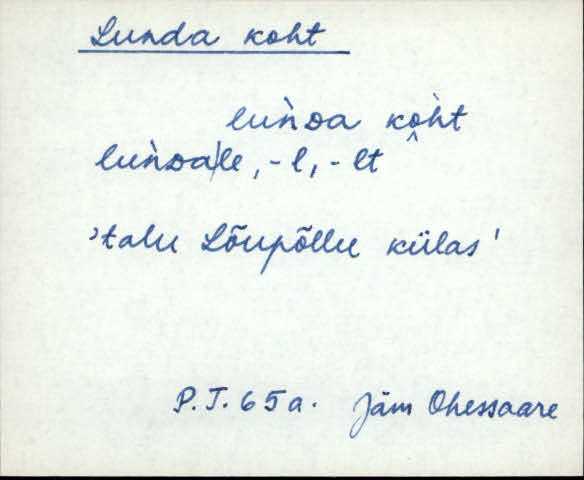 Lunda koht
lun̄̀da ko͔h̀t
lun̄̀da|le, -l, -lt
'talu Lõupõllu külas'
P.T. 65a. Jäm Ohessaare